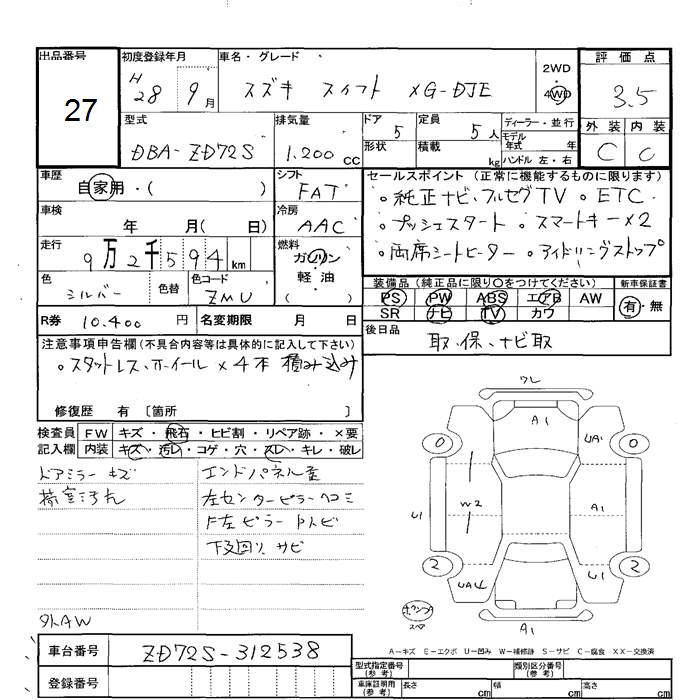 出品番号
27
初度登録年月
H 28 9月
車名・グレード
スズキ スイフト XG-DJE
2WD・4WD
評価点
3.5
外装 内装
C C
型式
DBA-ZD72S
排気量
1.200 cc
ドア 5
形状
定員 5人
積載 kg
ディーラー・並行
モデル年式 年
ハンドル 左・右
車歴
自家用・( )
シフト
FAT
車検
年 月( 日)
冷房
AAC
走行
9万2千594 km
燃料
ガソリン・軽油
( )
色
シルバー
色替
色コード
ZMU
R券 10.400 円
名変期限 月 日
セールスポイント(正常に機能するものに限ります)
。純正ナビ、フルセグTV 。ETC
。プッシュスタート 。スマートキー×2
。両席シートヒーター 。アイドリングストップ
装備品(純正品に限り○をつけてください)
PS PW ABS エアB AW
SR ナビ TV カワ
新車保証書
有・無
後日品
取、保、ナビ取
注意事項申告欄(不具合内容等は具体的に記入して下さい)
。スタットレス、ホイール×4本 積み込み
修復歴 有〔箇所 〕
検査員記入欄
FW キズ・飛石・ヒビ割・リペア跡・×要
内装 キズ・汚レ・コゲ・穴・スレ・キレ・破レ
ドアミラーキズ
荷室汚れ
エンドパネル歪
左センターピラーヘコミ
F左ピラー
下廻り、サビ
外AW
ワレ
A1
0 UA1 0
W2
U1
A1
2 UA4 U1 2
スペア
A1
A－キズ E－エクボ U－凹み W－補修跡 S－サビ C－腐食 XX－交換済
車台番号 ZD72S-312538
登録番号
型式指定番号(参考)
類別区分番号(参考)
車庫証明用(参考) 長さ cm 幅 cm 高さ cm